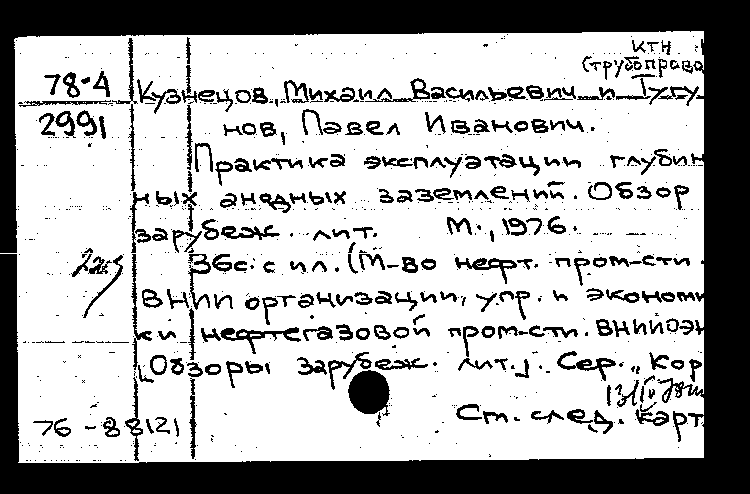 КТН
(трубопрово
78-4 Кузнецов, Михаил Васильевич и Тугу
2991 нов, Павел Иванович.
Практика эксплуатации глубин
ных анодных заземлений. Обзор
зарубеж. лит. М., 1976.
36с. с ил. (М-во нефт. пром-сти.
ВНИИ организации, упр. и экономи
ки нефтегазовой пром-сти. ВНИИОЭН
[Обзоры зарубеж. лит.]. Сер. „Кор
76-88121 Ст. след. карт